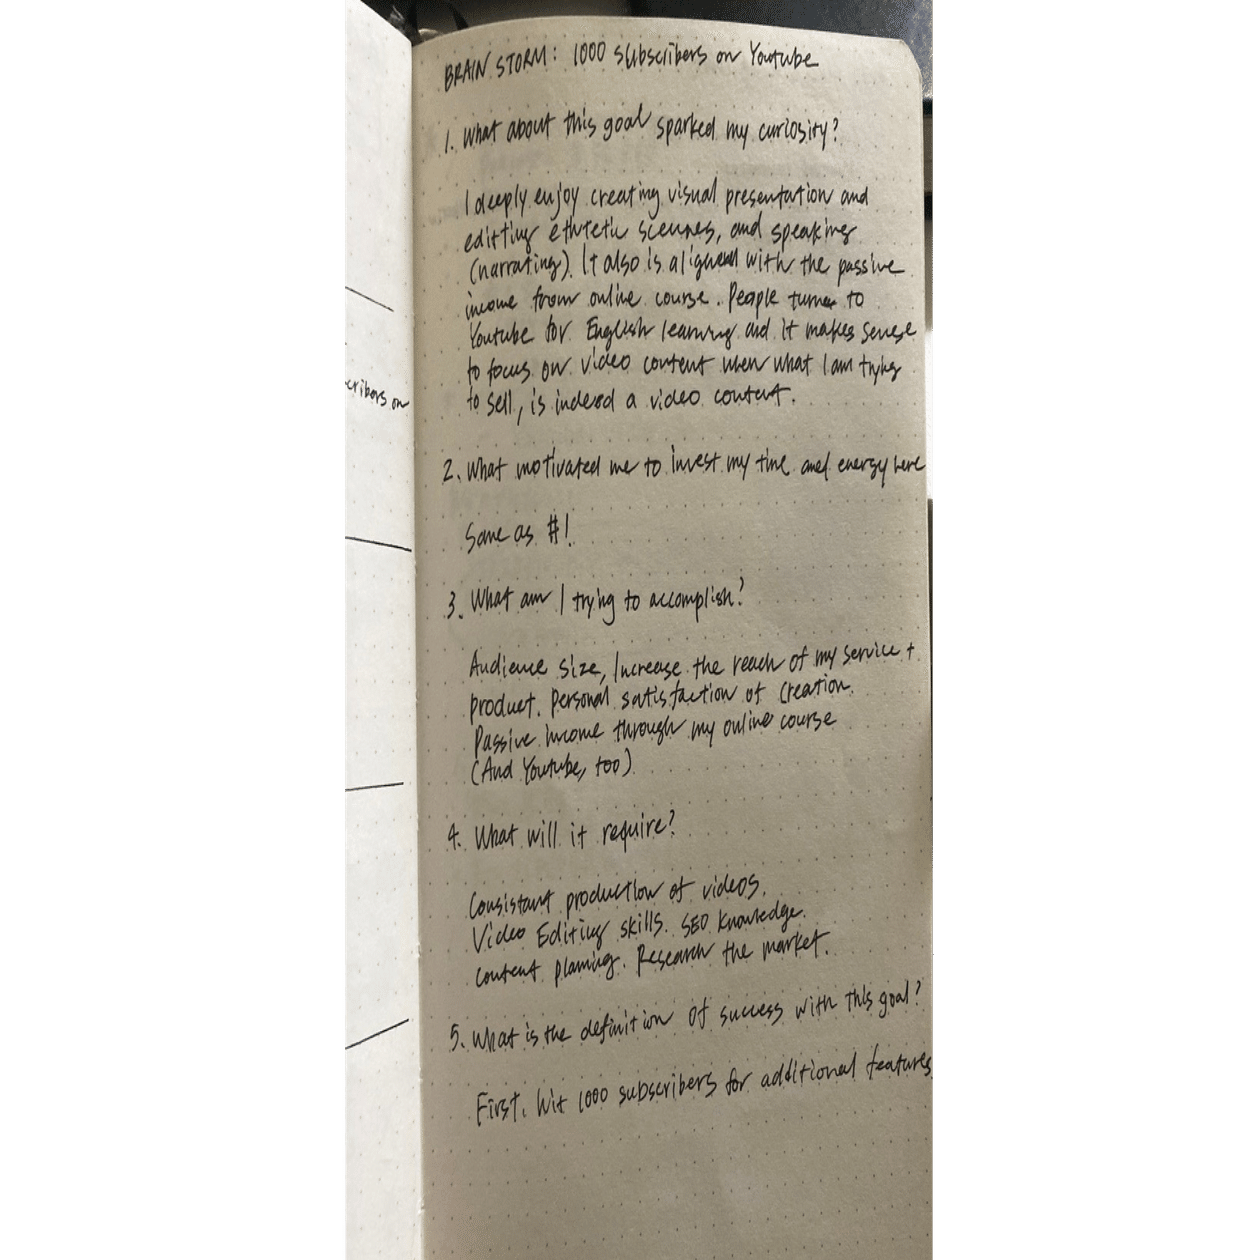 cribers on
BRAIN STORM: 1000 subscribers on Youtube
1. What about this goal sparked my curiosity?
I deeply enjoy creating visual presentation and
editting ethtetic scenes, and speaking
(narrating). It also is aligned with the passive
income from online course. People turn to
Youtube for English learning and it makes sense
to focus on video content when what I am trying
to sell, is indeed a video content.
2. What motivated me to invest my time and energy here
Same as #1
3. What am I trying to accomplish?
Audience size, Increase the reach of my service +
product. Personal satisfaction of creation.
Passive income through my online course
(And Youtube, too)
4. What will it require?
Consistant production of videos.
Video Editing skills. SEO knowledge.
content planning. Research the market.
5. What is the definition of success with this goal?
First, hit 1000 subscribers for additional features